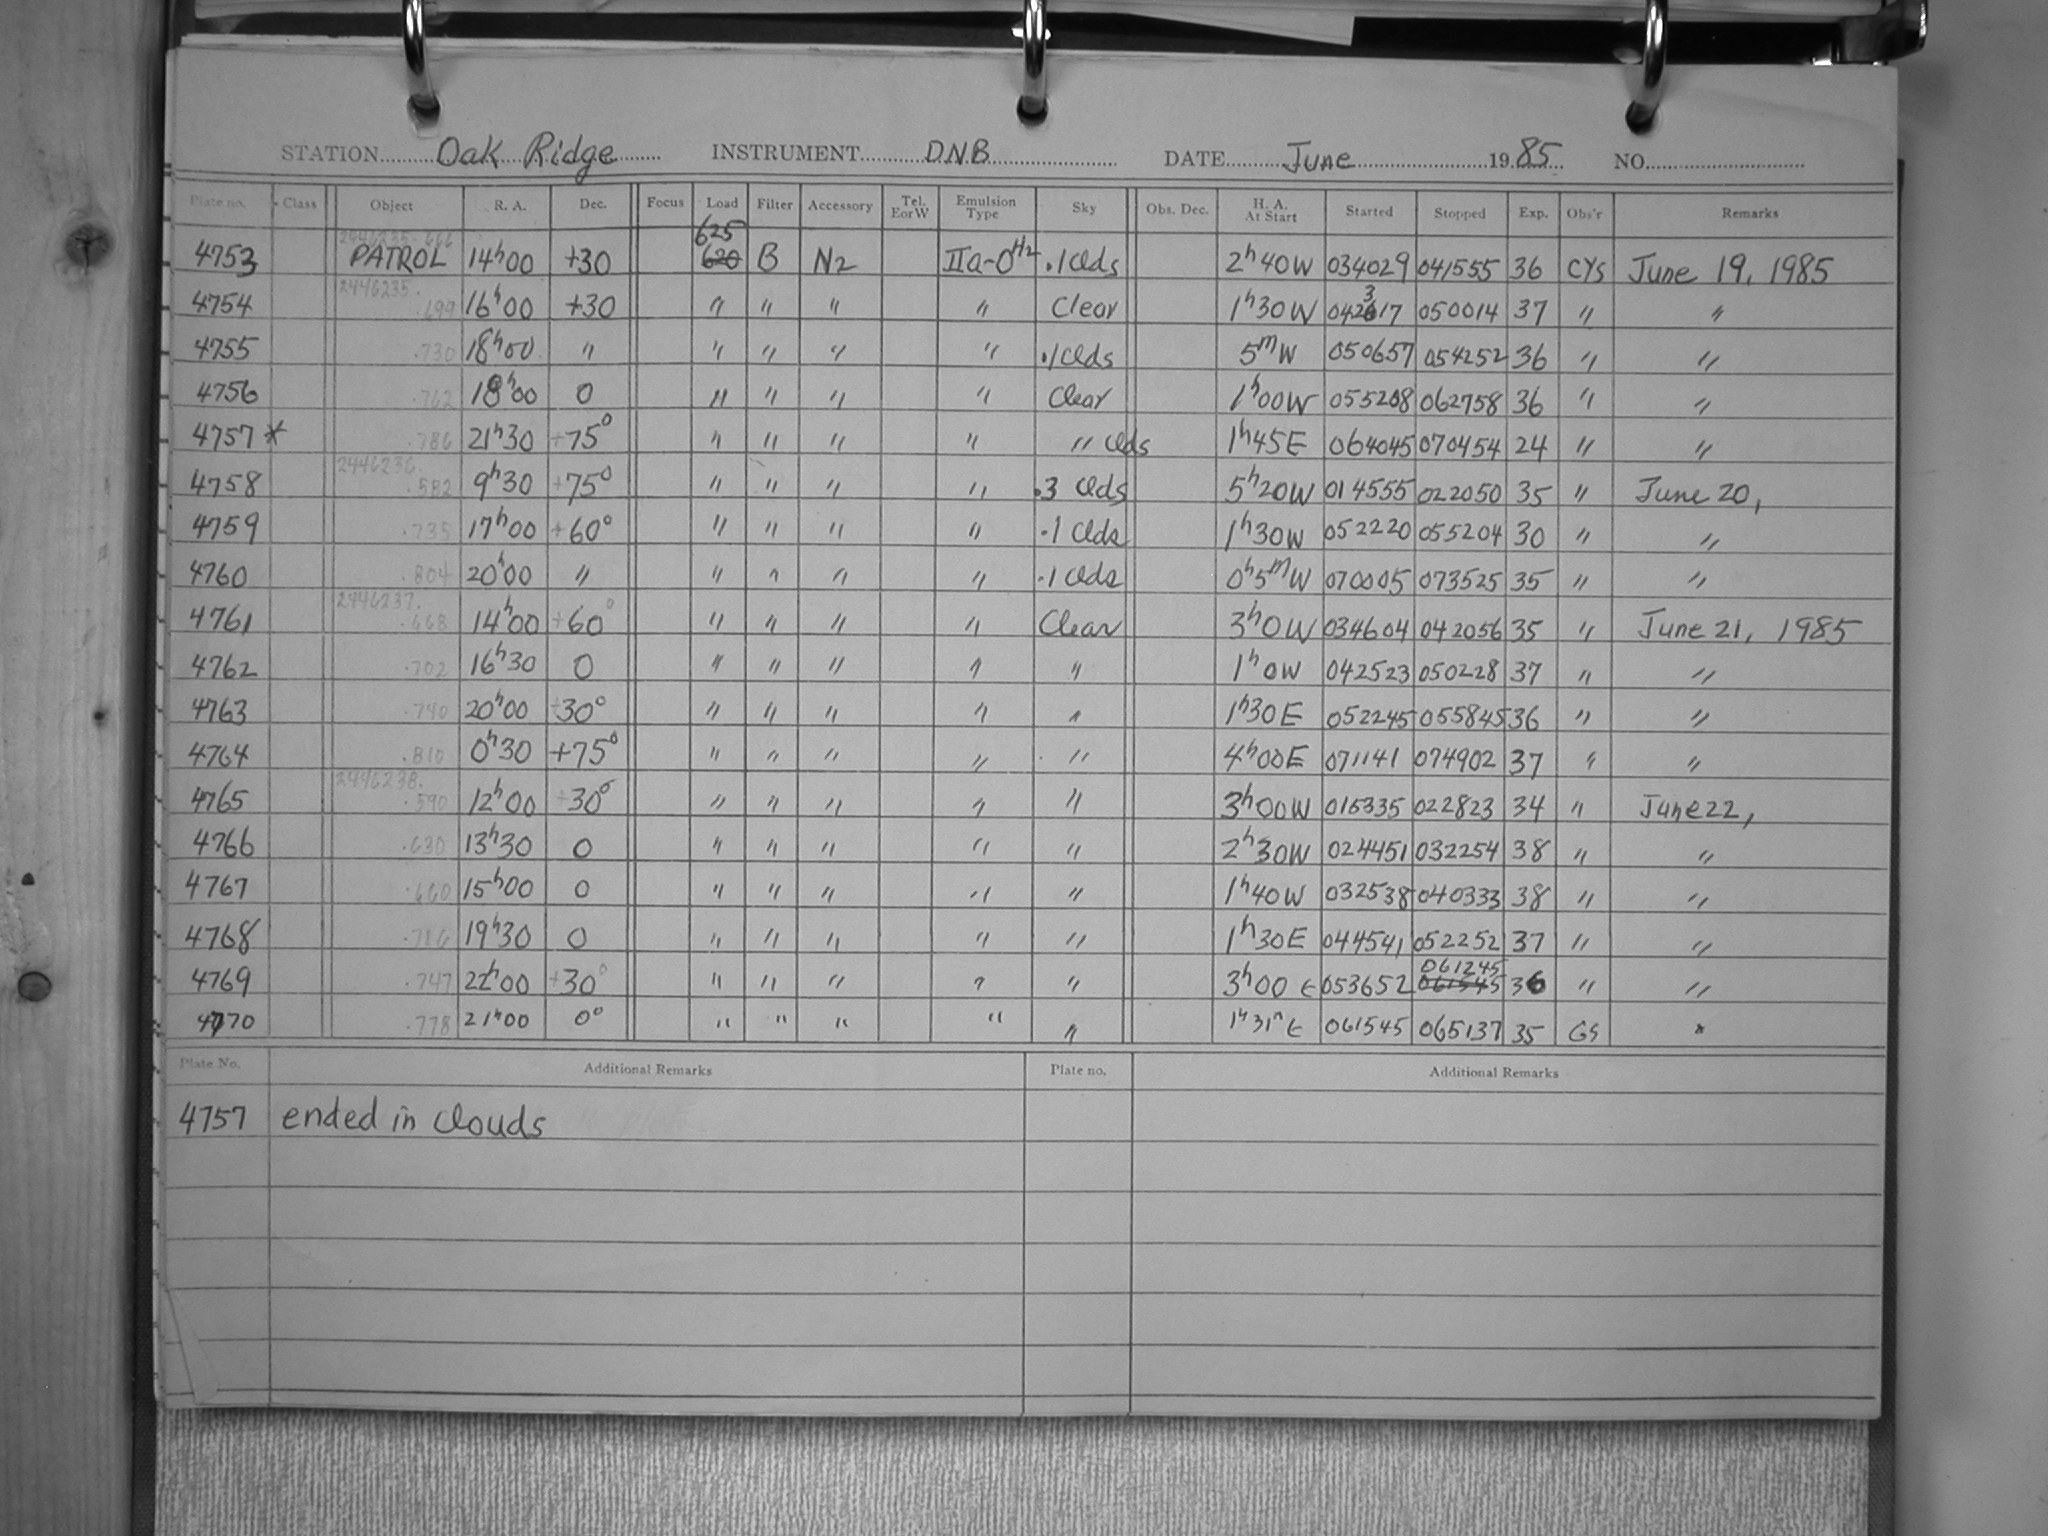 STATION Oak Ridge INSTRUMENT DNB DATE June 1985 NO.
Plate no. Class Object R. A. Dec. Focus Load Filter Accessory Tel. E or W Emulsion Type Sky Obs. Dec. H. A. At Start Started Stopped Exp. Obs'r Remarks
625
4753 PATROL 14h00 +30 620 B N2 IIa-OH2 .1 clds 2h40W 034029 041555 36 CYS June 19, 1985
2446235.
4754 .699 16h00 +30 " " " " Clear 1h30W 042317 050014 37 " "
4755 .730 18h00 " " " " " .1 clds 5mW 050657 054252 36 " "
4756 .762 18h00 0 " " " " Clear 1h00W 055208 062758 36 " "
4757 * .786 21h30 +75° " " " " " clds 1h45E 064045 070454 24 " "
2446236.
4758 .582 9h30 +75° " " " " .3 clds 5h20W 014555 022050 35 " June 20,
4759 .735 17h00 +60° " " " " .1 clds 1h30W 052220 055204 30 " "
4760 .804 20h00 " " " " " .1 clds 0h5mW 070005 073525 35 " "
2446237.
4761 .668 14h00 +60° " " " " Clear 3h0W 034604 042056 35 " June 21, 1985
4762 .702 16h30 0 " " " " " 1h0W 042523 050228 37 " "
4763 .740 20h00 +30° " " " " " 1h30E 052245 055845 36 " "
4764 .810 0h30 +75° " " " " " 4h00E 071141 074902 37 " "
2446238.
4765 .590 12h00 +30° " " " " " 3h00W 015335 022823 34 " June 22,
4766 .630 13h30 0 " " " " " 2h30W 024451 032254 38 " "
4767 .660 15h00 0 " " " " " 1h40W 032538 040333 38 " "
4768 .716 19h30 0 " " " " " 1h30E 044541 052252 37 " "
061245
4769 .747 22h00 +30° " " " " " 3h00 E 053652 061545 36 " "
4770 .778 21h00 0° " " " " " 1h31m E 061545 065137 35 GS "
Plate No. Additional Remarks Plate no. Additional Remarks
4757 ended in clouds